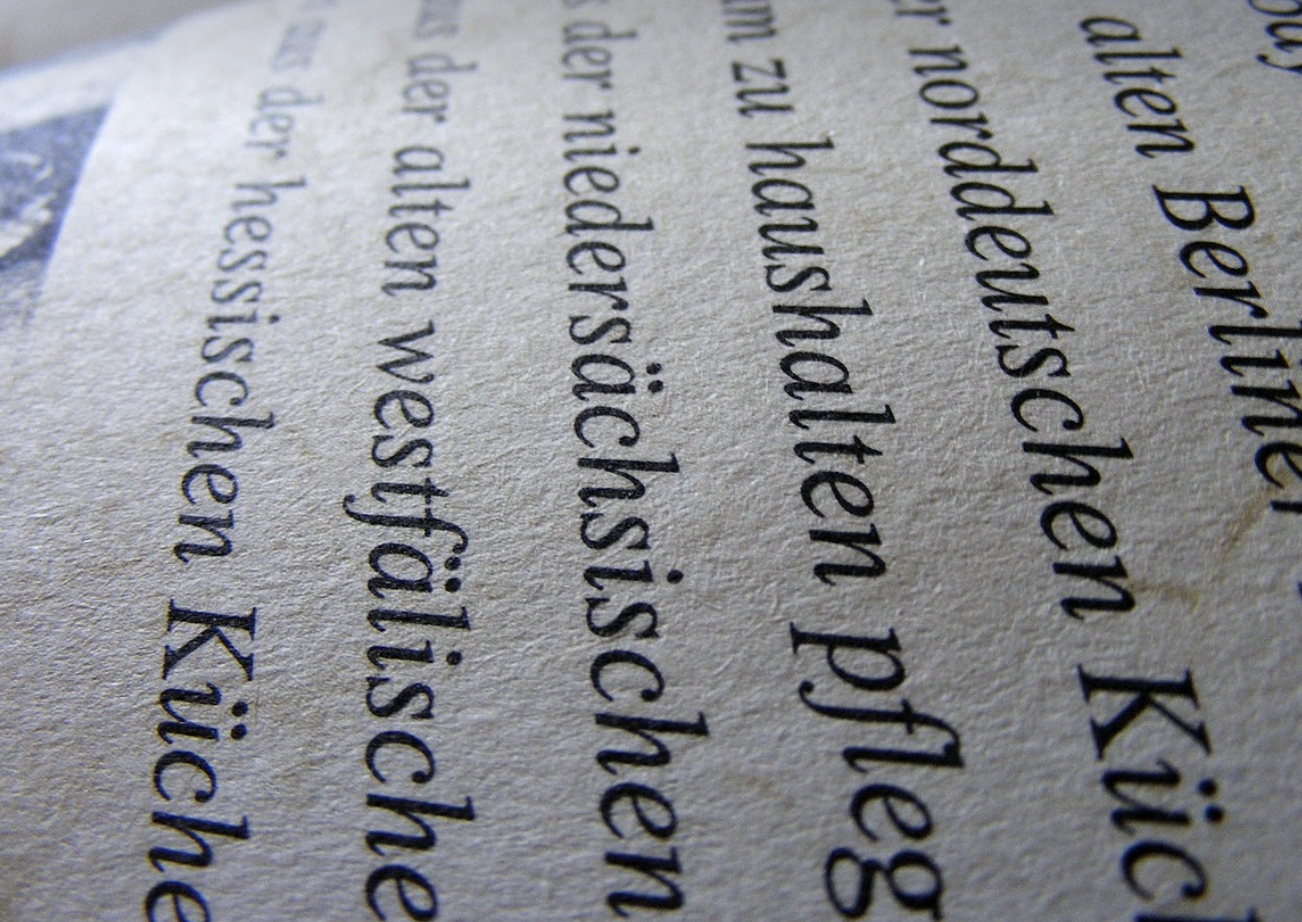 alten Berliner
er norddeutschen Küch
am zu haushalten pfleg
s der niedersächsischen
aus der alten westfälische
aus der hessischen Küche